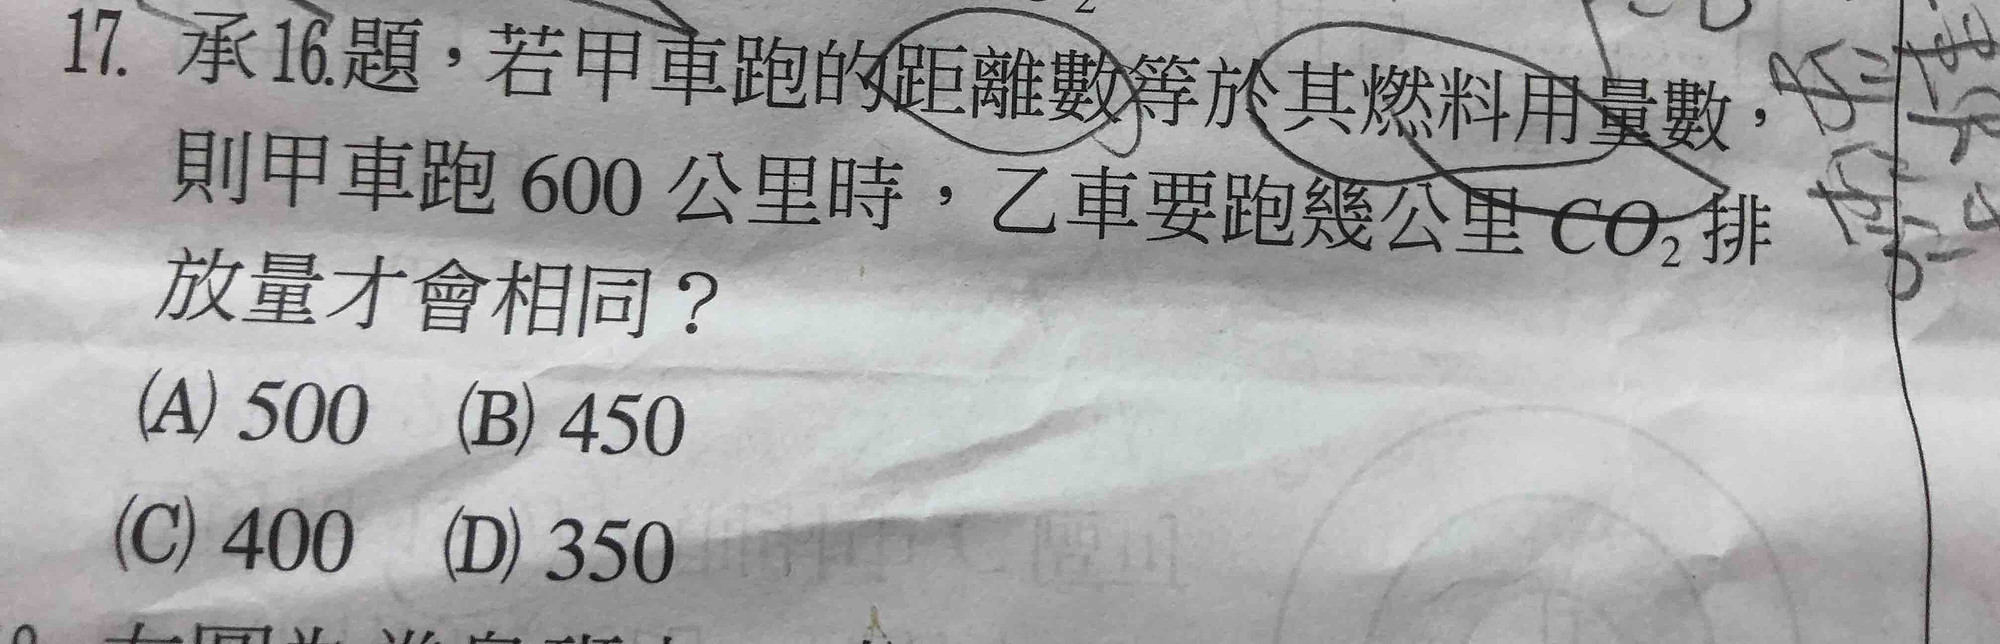 17. 承16.題，若甲車跑的距離數等於其燃料用量數，
則甲車跑 600 公里時，乙車要跑幾公里 CO₂ 排
放量才會相同？
(A) 500 (B) 450
(C) 400 (D) 350